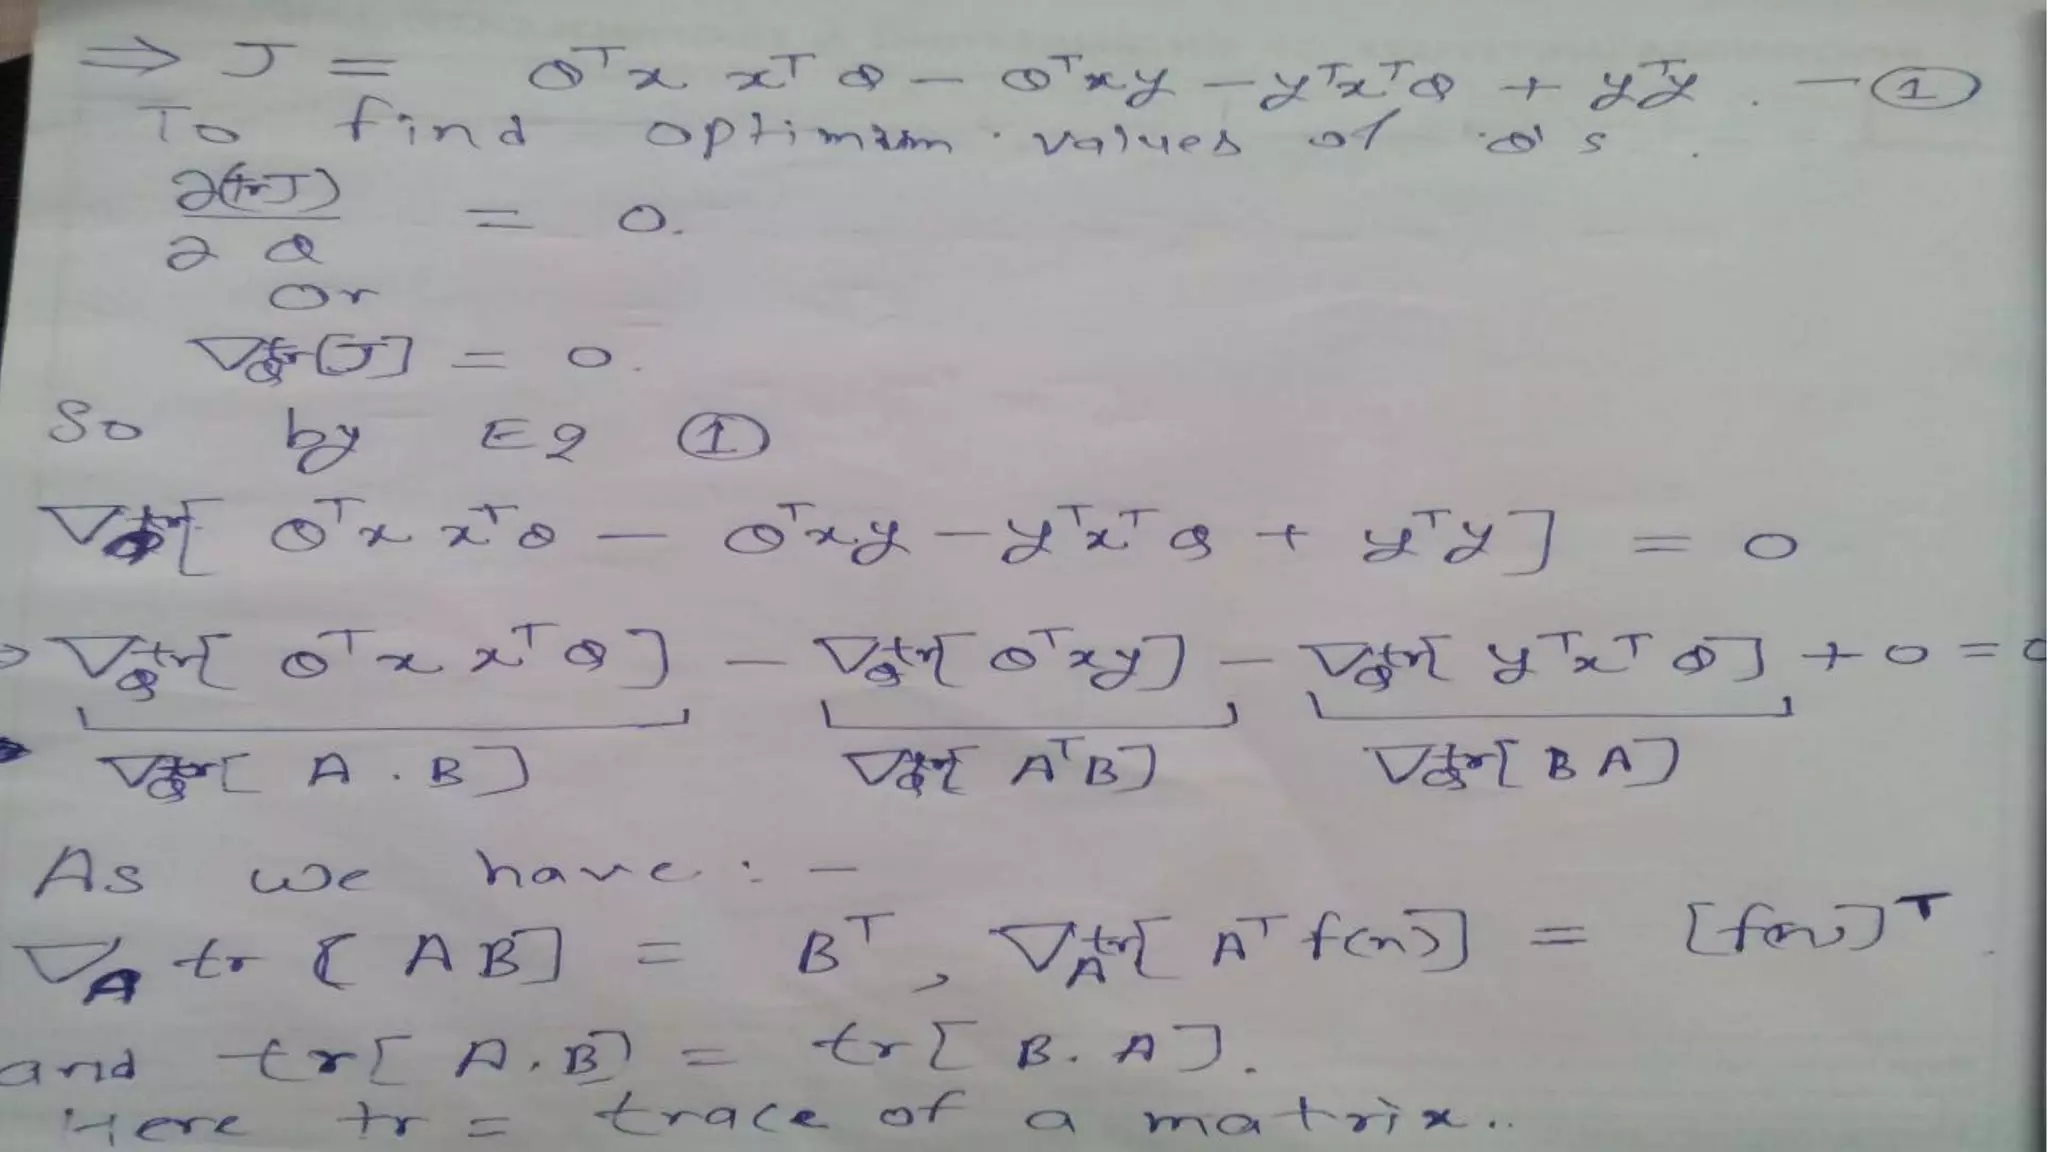 ⇒ J = θᵀx xᵀθ − θᵀxy − yᵀxᵀθ + yᵀy . − ①
To find optimum values of θ's .
∂(trJ) / ∂θ = 0.
or
∇θ tr[J] = 0.
So by EQ ①
∇θ tr[ θᵀx xᵀθ − θᵀxy − yᵀxᵀθ + yᵀy ] = 0
⇒ ∇θ tr[ θᵀx xᵀθ ] − ∇θ tr[ θᵀxy ] − ∇θ tr[ yᵀxᵀθ ] + 0 = 0
∇θ tr[ A . B ] ∇θ tr[ AᵀB ] ∇θ tr[ B A ]
As we have : −
∇A tr [ A B ] = Bᵀ , ∇A tr[ Aᵀ f(n) ] = [f(n)]ᵀ .
and tr[ A . B ] = tr[ B . A ] .
Here tr = trace of a matrix..